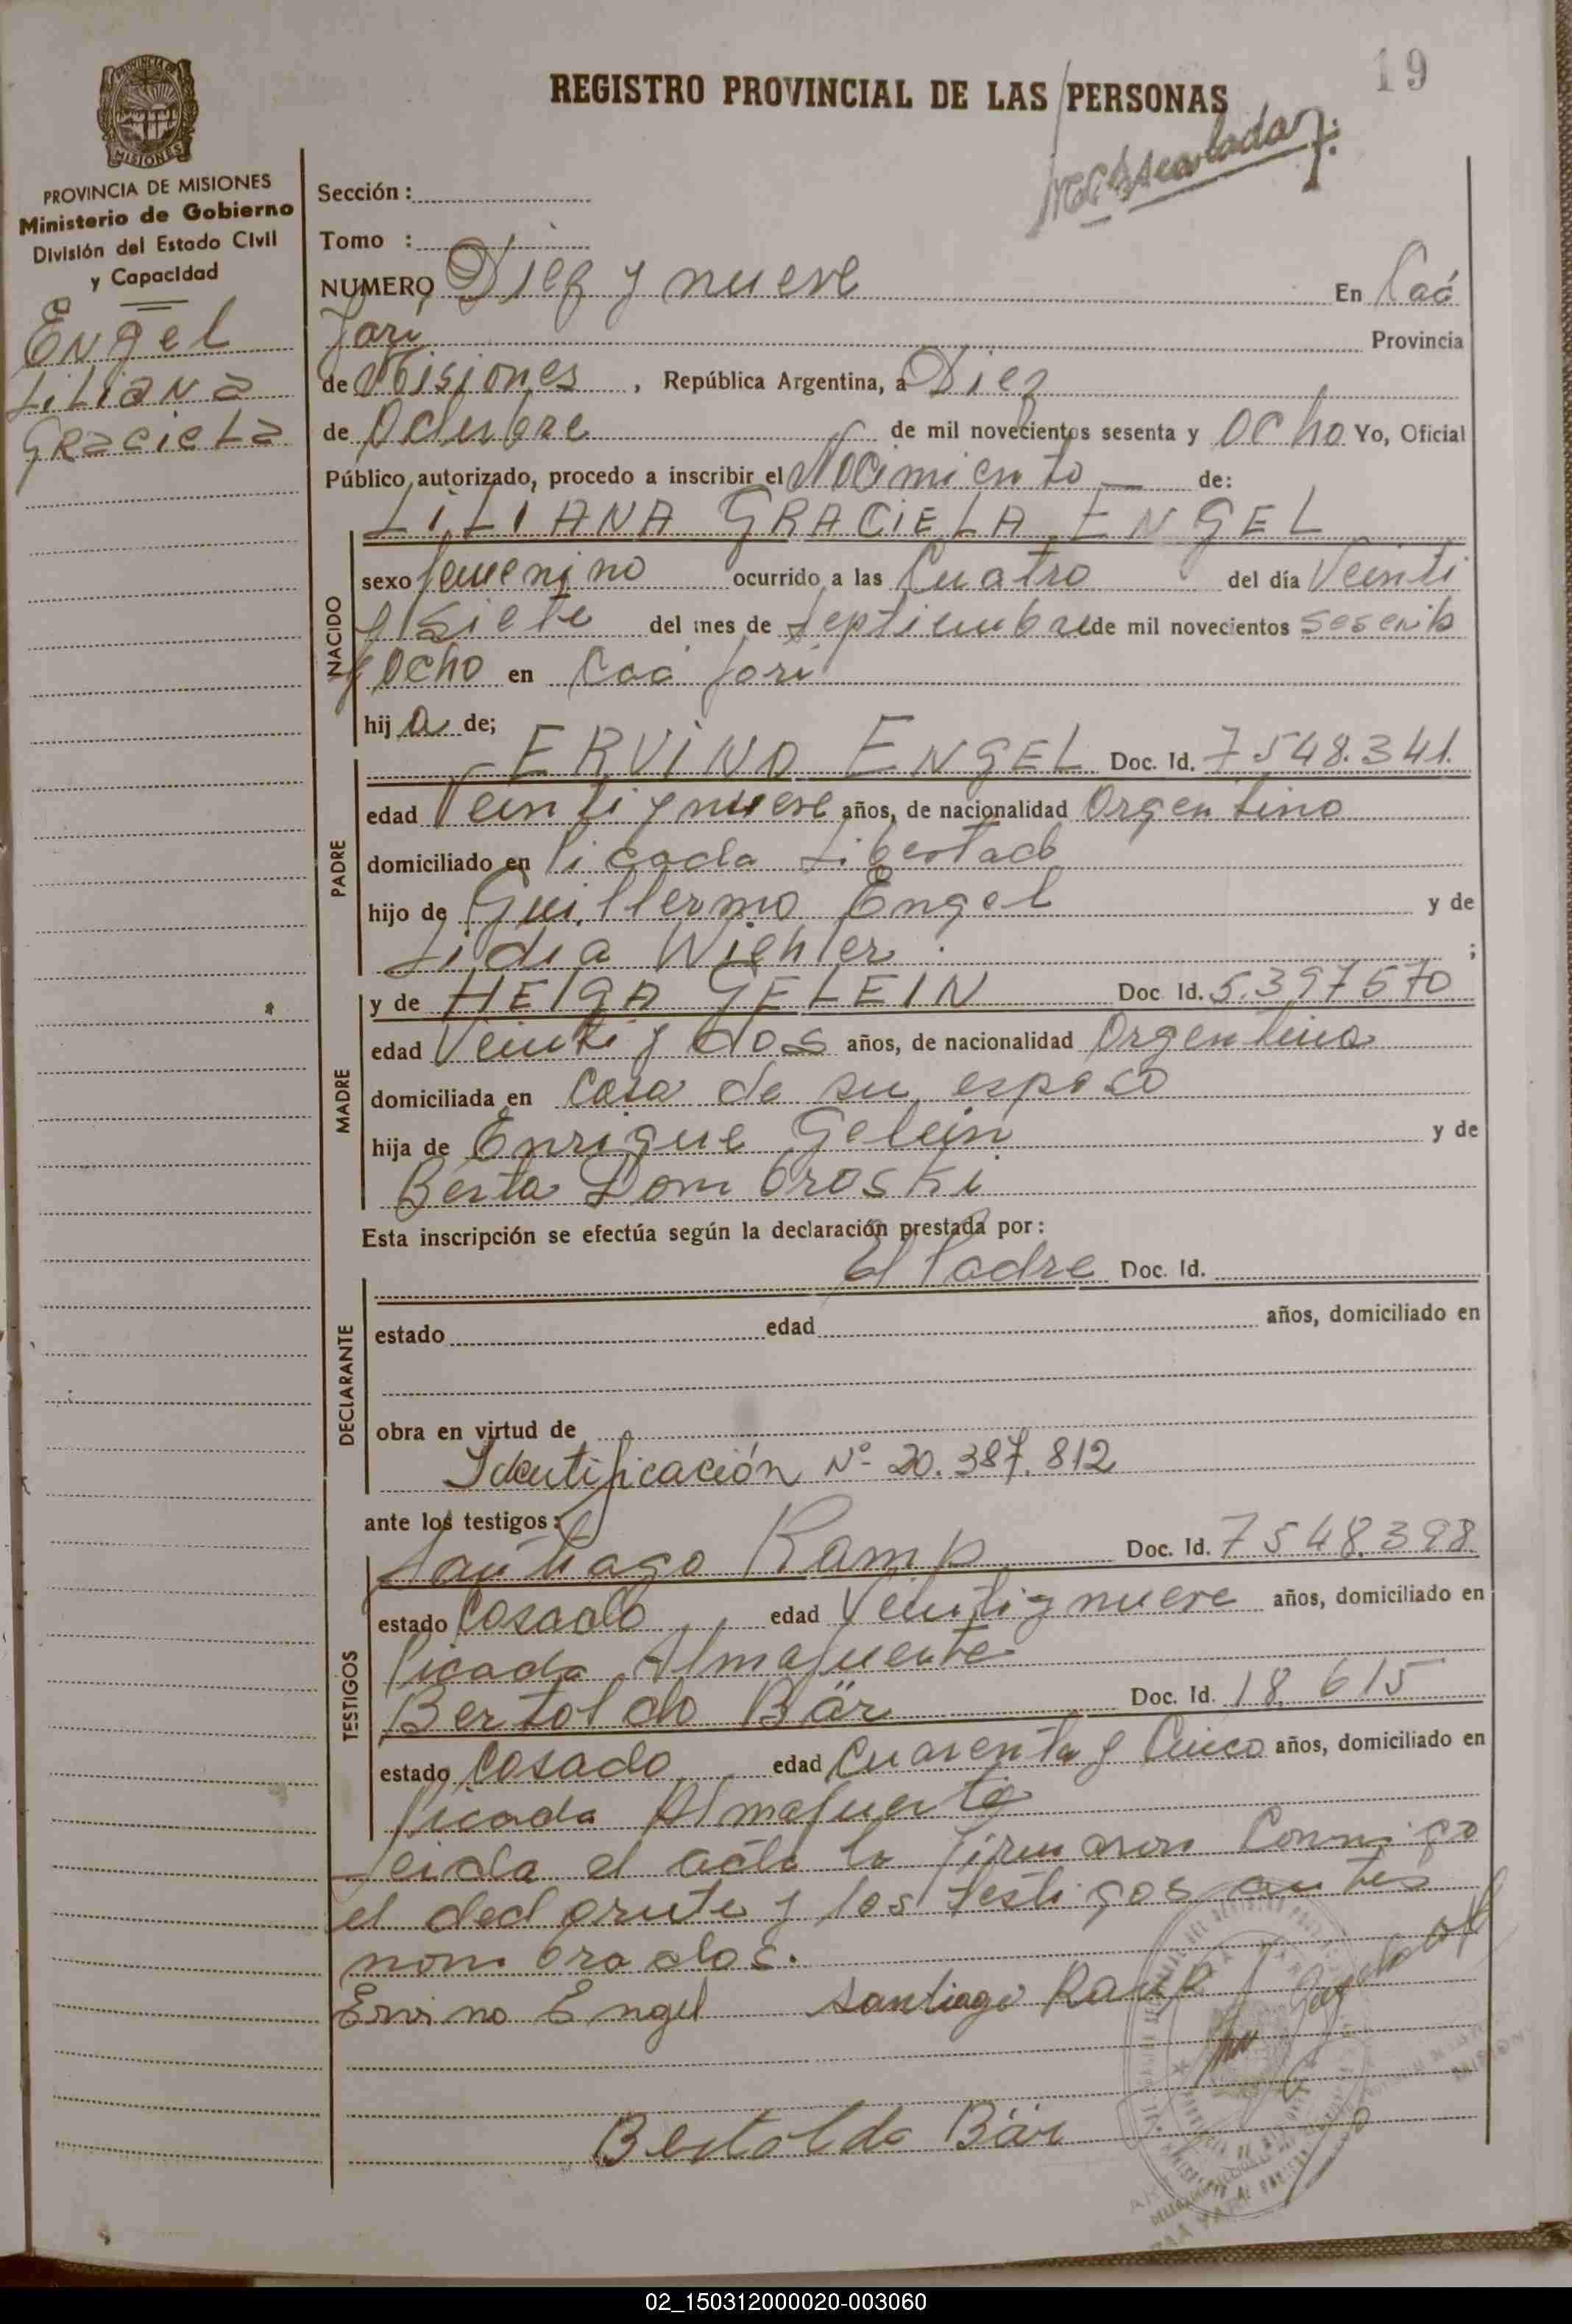 19
REGISTRO PROVINCIAL DE LAS PERSONAS
PROVINCIA DE MISIONES
Ministerio de Gobierno
División del Estado Civil
y Capacidad
Engel
Liliana
Graciela
Sección :
Tomo :
NUMERO Diez y nueve En Caá
Yari Provincia
de Misiones , República Argentina, a Diez
de Octubre de mil novecientos sesenta y ocho Yo, Oficial
Público autorizado, procedo a inscribir el Nacimiento de:
LILIANA GRACIELA ENGEL
NACIDO
sexo femenino ocurrido a las Cuatro del día Veinti
y siete del mes de Septiembre de mil novecientos sesenta
y ocho en Caá Yari
hij a de;
PADRE
ERVINO ENGEL Doc. Id. 7.548.341.
edad Veinti y nueve años, de nacionalidad Argentino
domiciliado en Picada Libertad
hijo de Guillermo Engel y de
Lidia Wiehler ;
MADRE
y de HELGA GELEIN Doc Id. 5.397570
edad Veinti y dos años, de nacionalidad Argentina
domiciliada en Casa de su esposo
hija de Enrique Gelein y de
Berta Dombroski
Esta inscripción se efectúa según la declaración prestada por :
DECLARANTE
El Padre Doc. Id.
estado edad años, domiciliado en
obra en virtud de
Identificación Nº 20.387.812
ante los testigos :
TESTIGOS
Santiago Ramp Doc. Id. 7548.398.
estado Casado edad Veinti y nueve años, domiciliado en
Picada Almafuerte
Bertoldo Bär Doc. Id. 18.615
estado Casado edad Cuarenta y Cinco años, domiciliado en
Picada Almafuerte
Leida el acta la firmaron Conmigo
el y los testigos antes
nombrados.
Ervino Engel Santiago Ramp
Bertoldo Bär
02_150312000020-003060